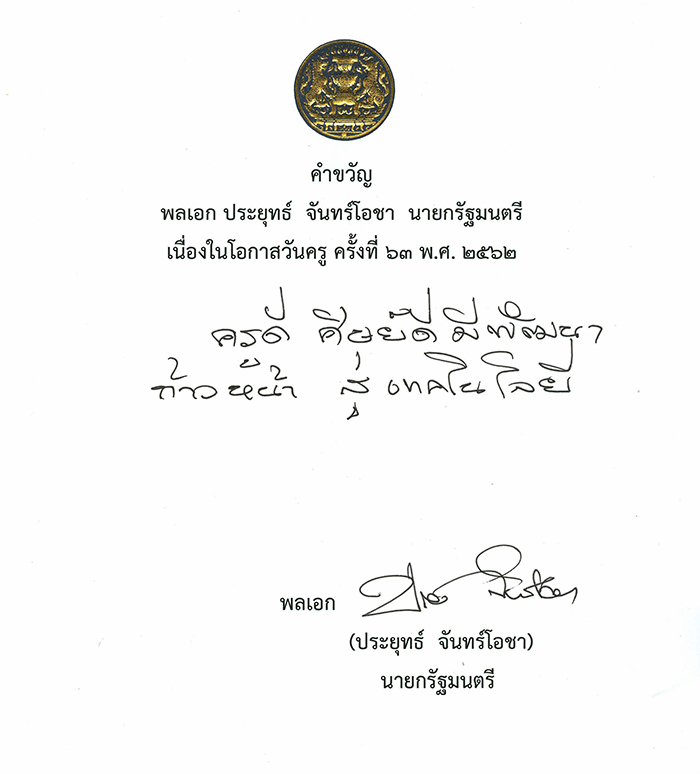 คำขวัญ
พลเอก ประยุทธ์ จันทร์โอชา นายกรัฐมนตรี
เนื่องในโอกาสวันครู ครั้งที่ ๖๓ พ.ศ. ๒๕๖๒
ครูดี ศิษย์ดี มีพัฒนา
ก้าวหน้า สู่เทคโนโลยี
พลเอก
(ประยุทธ์ จันทร์โอชา)
นายกรัฐมนตรี